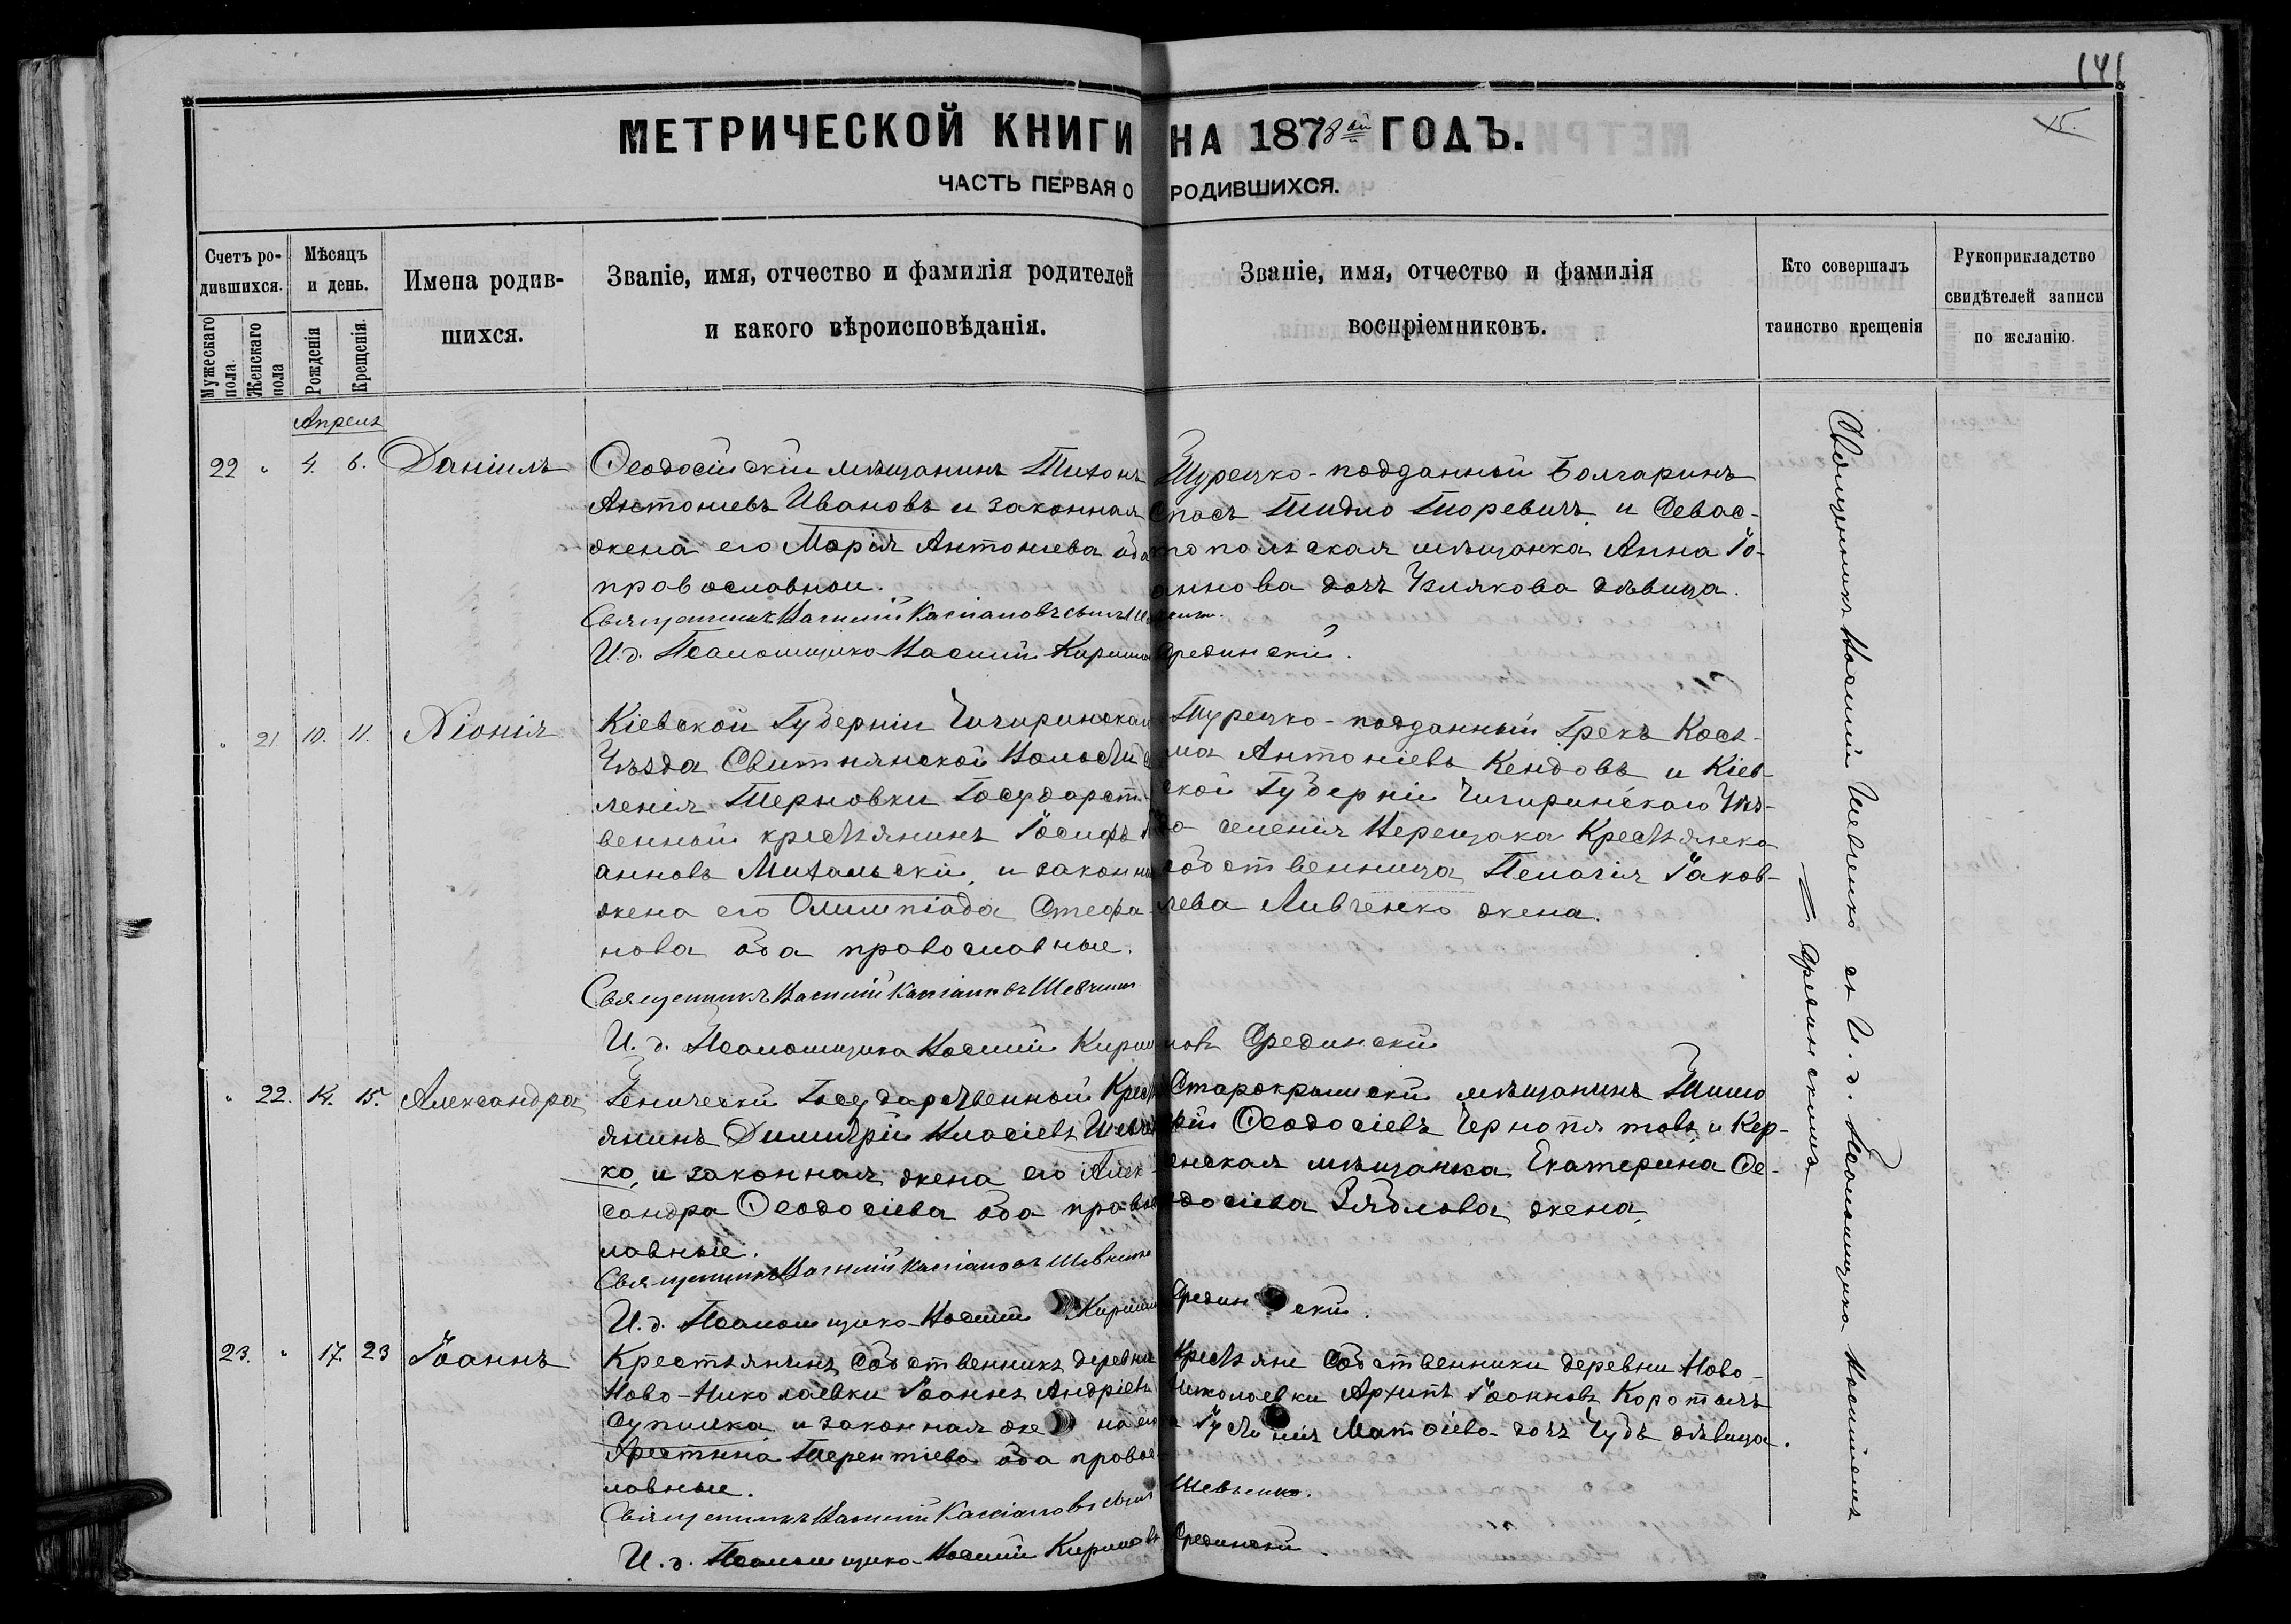 141
15.
МЕТРИЧЕСКОЙ КНИГИ НА 1878ой ГОДЪ.
ЧАСТЬ ПЕРВАЯ О РОДИВШИХСЯ.
Счетъ родившихся.
Мужескаго пола
Женскаго пола
Мѣсяцъ и день.
Рожденія
Крещенія.
Имена родив-
шихся.
Званіе, имя, отчество и фамилія родителей
и какого вѣроисповѣданія.
Званіе, имя, отчество и фамилія
воспріемниковъ.
Кто совершалъ
таинство крещенія
Рукоприкладство
свидѣтелей записи
по желанію.
Апрель
22 " 4. 6. Даніилъ
Ѳеодосійскій мѣщанинъ Тихонъ
Антоніевъ Ивановъ и законная
жена его Марія Антоніева оба
православныи.
Священникъ Василий Кассіановъ сынъ
И. д. Псаломщика Василий
Турецко-подданный Болгаринъ
Спасъ Тодоревичъ и Севас-
топольская мѣщанка Анна Іо-
аннова дочь дѣвица.
Срединский.
" 21 10. 11. Хіонія
Кіевской Губерніи Чигиринскаго
Уѣзда Свитнянской Волости се
ленія Терновки Государст-
венный крестьянинъ Іосифъ Іо
анновъ Михальскій, и законная
жена его Олимпіада Стефа-
нова оба православные.
Священникъ Василий Кассіановъ Шевченко
И. д. Псаломщика Василий Кириловъ Срединский
Турецко-подданный Грекъ Кось-
ма Антоніевъ Кендовъ и Кіев-
ской Губерніи Чигиринскаго Уѣз-
да селенія Верещака Крестьянка
собственница Пелагія Іаков-
лева Ливченко жена.
" 22. 14. 15. Александра
Геническій Государственный Кресть
янинъ Димитрій Власіевъ Шевчен
ко, и законная жена его Алек-
сандра Ѳеодосіева оба правос
лавные.
Священникъ Василий Кассіановъ Шевченко
И. д. Псаломщика Василий Срединский.
Старокрымскій мѣщанинъ Тимо
фей Ѳеодосіевъ Чернопятовъ и Кер-
ченская мѣщанка Екатерина Ѳе-
одосіева Ряблова жена.
23. " 17. 23 Іоаннъ
Крестьянинъ Собственникъ деревни
Ново-Николаевки Іоаннъ Андріевъ
Супинка и законная жена его
Христина Терентіева оба правос-
лавные.
Священникъ Василий Кассіановъ сынъ Шевченко.
И. д. Псаломщика Василий Кириловъ Срединский
Крестьяне Собственники деревни Ново-
Николаевки Архипъ Іоанновъ Коротычъ
и Іустинія Матѳіева дочь Чубъ дѣвица.
Священникъ Василий Шевченко съ И. д. Псаломщика Василиемъ
Срединскимъ